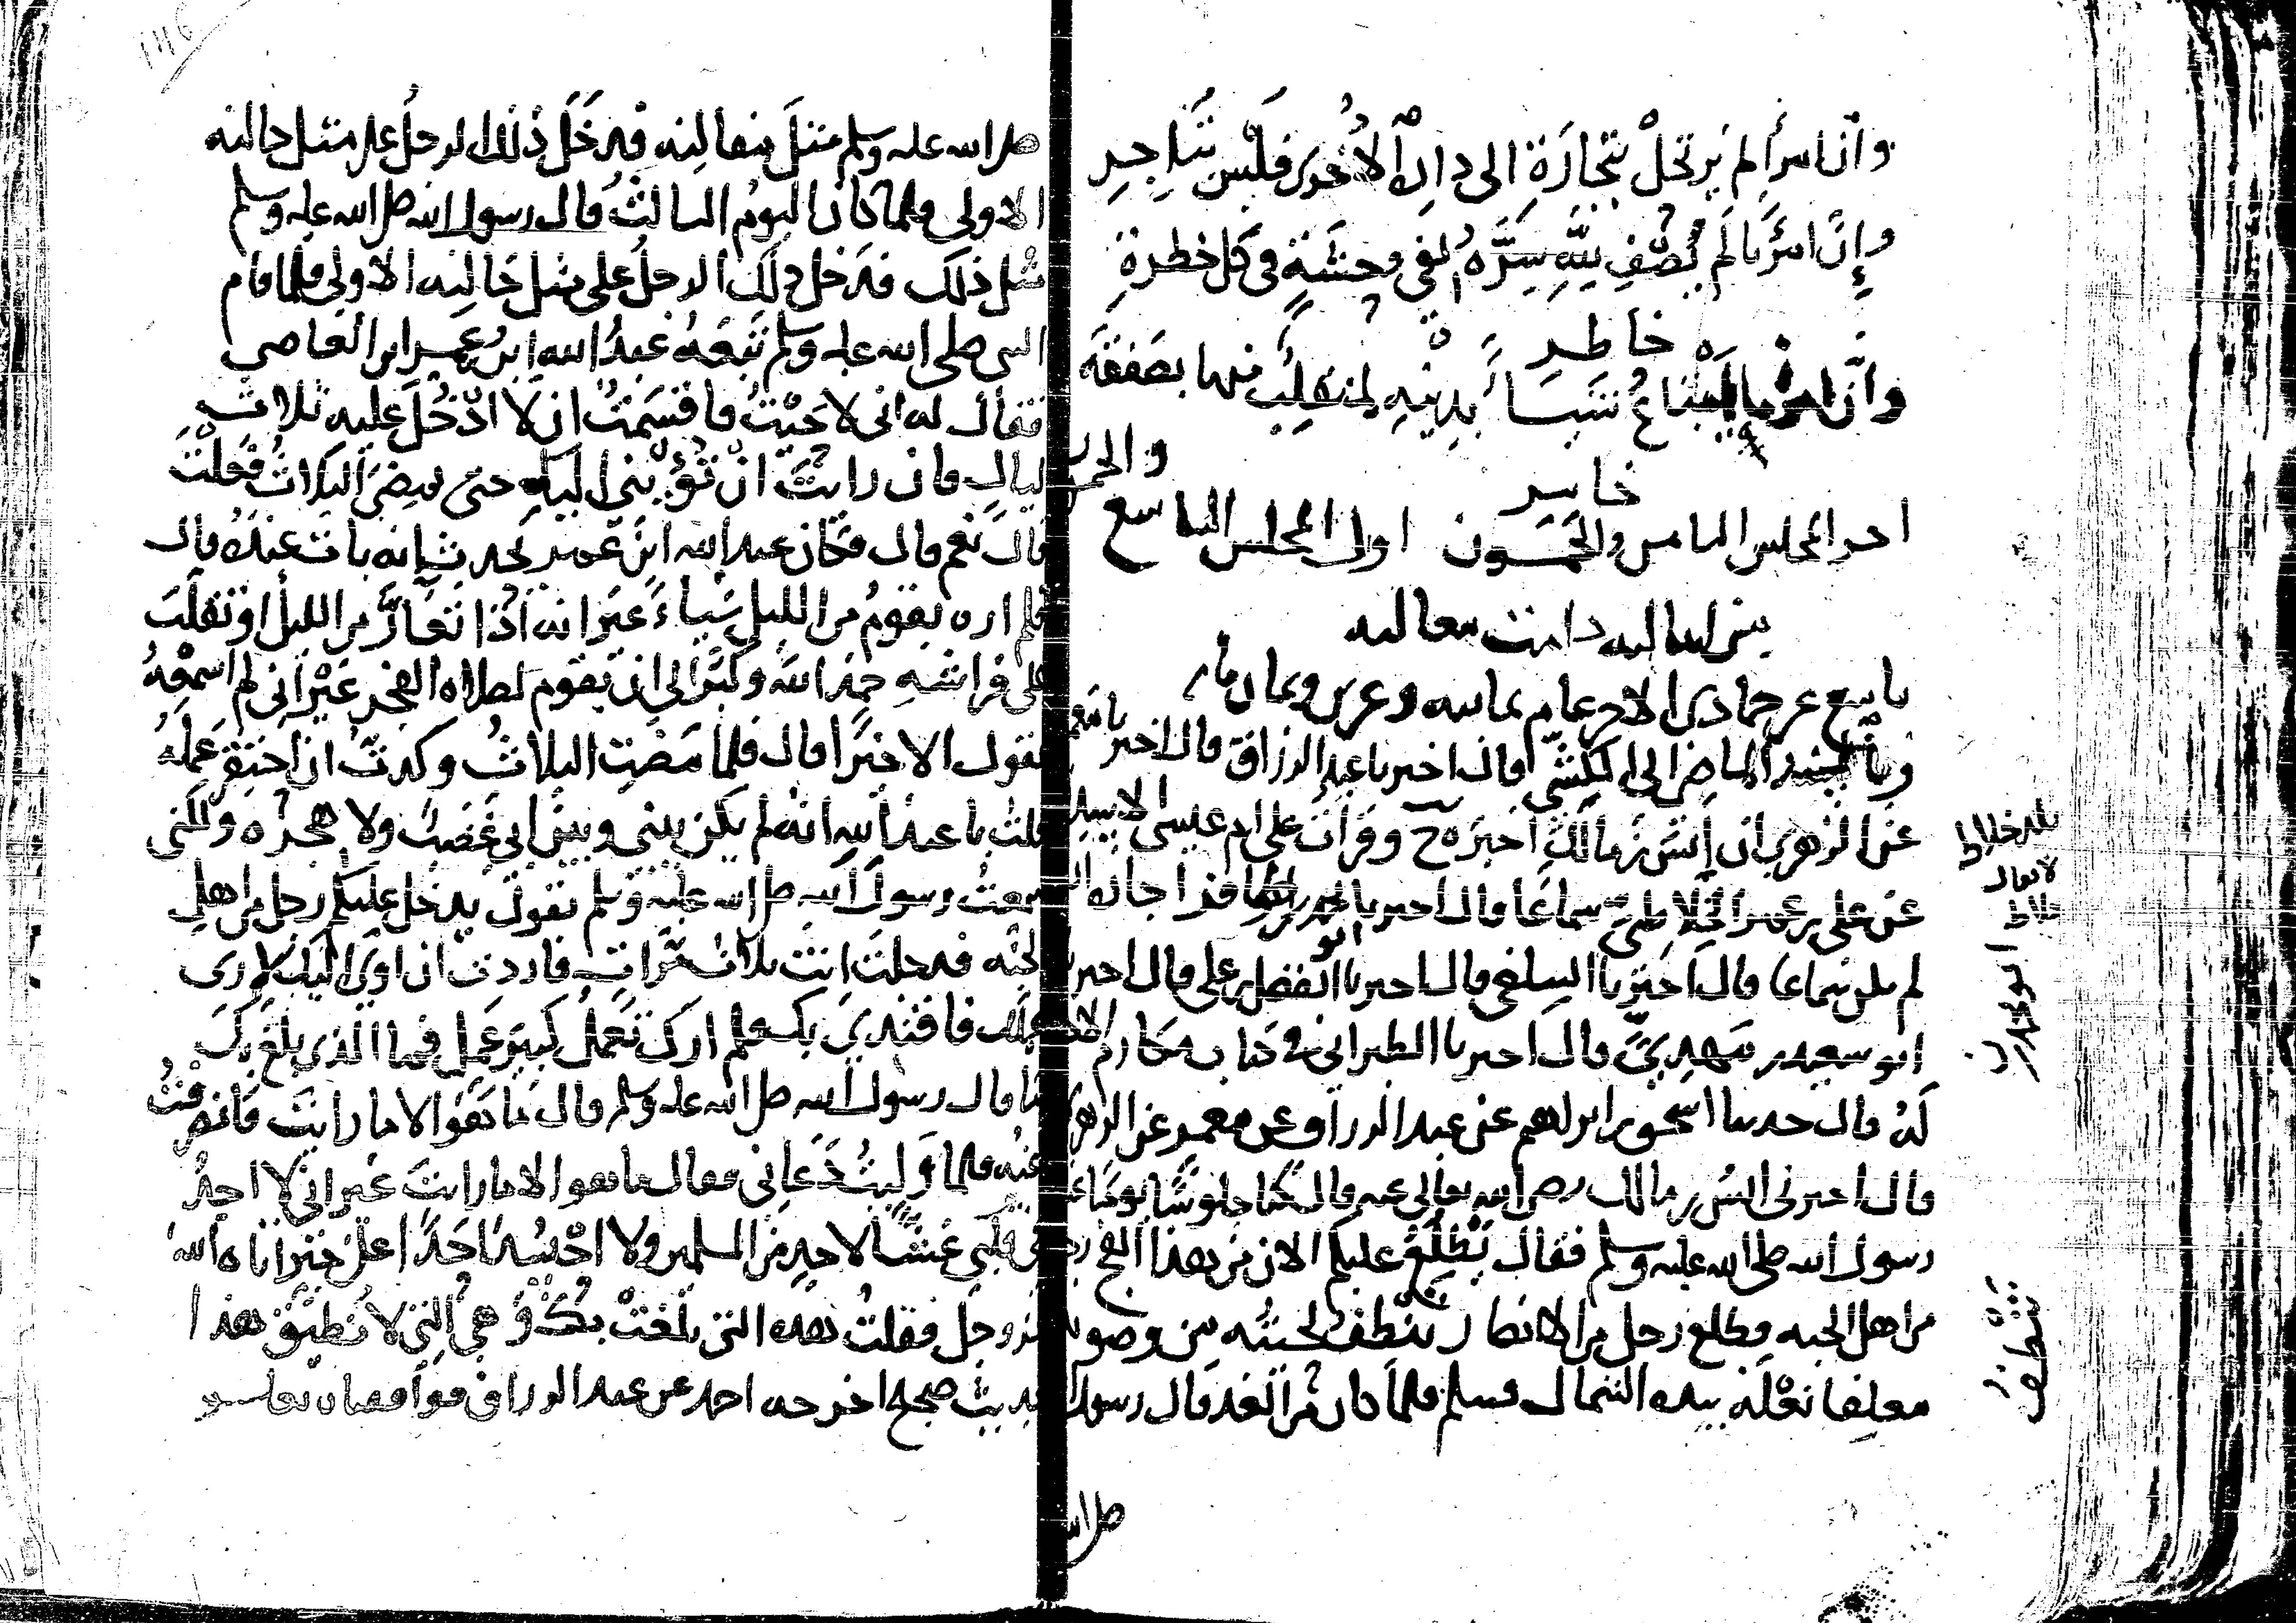 وأن امرأ لم يرتحل بتجارة الى دار الأخرى فليس بتاجر
وإن امرأ لم يصف لله سره لفي وحشة في كل خطرة
خاطر
وأن امرأ يبتاع بدينه لمنقلب منها بصفقة
خاسر
اخر المجلس الثامن والخمسون اول المجلس التاسع والخمسين
من اماليه دامت معاليه
تاسع عشر جمادى الاخر عام ثمانيه وعشرين وثمان مايه
وبالسند الماضي الى الكشي قال اخبرنا عبد الرزاق قال اخبرنا معمر
عن الزهري ان انس بن مالك اخبره ح وقرات على ام عيسى
عن علي بن عمر الخلاطي سماعا قال اخبرنا
لم يكن سماعا قال اخبرنا السلفي قال اخبرنا ابو الفضل بن علي قال اخبرنا
ابو سعيد بن مهدي قال اخبرنا الطبراني في كتاب مكارم الاخلاق
له قال حدثنا اسحق بن ابراهيم عن عبد الرزاق عن معمر عن الزهري
قال اخبرني انس بن مالك رضي الله تعالى عنه قال كنا جلوسا يوما عند
رسول الله صلى الله عليه وسلم فقال يطلع عليكم الان من هذا الفج رجل
من اهل الجنه فطلع رجل من الانصار تنطف لحيته من وضويه
معلقا نعله بيده الشمال فسلم فلما كان من الغد قال رسول
صلى الله
بلد خلاط
لا يقال
خلاط
تنطف
صلى الله عليه وسلم مثل مقالته فدخل ذلك الرجل على مثل حالته
الاولى فلما كان اليوم الثالث قال رسول الله صلى الله عليه وسلم
مثل ذلك فدخل ذلك الرجل على مثل حالته الاولى فلما قام
النبي صلى الله عليه وسلم تبعه عبد الله ابن عمرو ابن العاصي
فقال له اني لاحيت فاقسمت ان لا ادخل عليه ثلاث
ليال فان رايت ان تؤويني اليك حتى يمضي الثلاث فعلت
قال نعم قال فكان عبد الله ابن عمرو يحدث انه بات عنده قال
فلم اره يقوم من الليل شياء غير انه اذا تعار من الليل او تقلب
على فراشه حمد الله وكبر الى ان يقوم لصلاه الفجر غير اني لم اسمعه
يقول الا خيرا قال فلما مضت الثلاث وكدت ان احتقر عمله
قلت يا عبد الله انه لم يكن بيني وبين ابي غضب ولا هجره ولكني
سمعت رسول الله صلى الله عليه وسلم يقول يدخل عليكم رجل من اهل
الجنه فدخلت انت ثلاث مرات فاردت ان اوي اليك لارى
عملك فاقتدي بك فلم ارك تعمل كبير عمل فما الذي بلغ بك
ما قال رسول الله صلى الله عليه وسلم قال ما هو الا ما رايت فانصرفت
عنه فلما وليت دعاني فقال ما هو الا ما رايت غير اني لا اجد
في قلبي غشا لاحد من المسلمين ولا احسد احدا على خير اتاه الله
عز وجل فقلت هذه التي بلغت بك وهي التي لا نطيق هذا
حديث صحيح اخرجه احمد عن عبد الرزاق